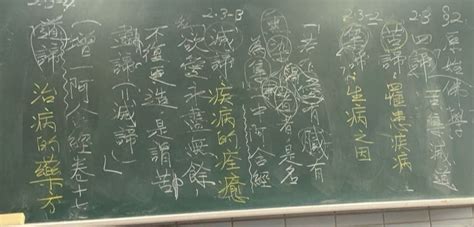 §2 原始佛學
2.3 四諦:苦集滅道
苦諦:罹患疾病
2.3-2
集諦:生病之因
有
是名
中阿含經
2.3-3
滅諦 疾病的痊癒
欲愛永盡無餘
不復更造是謂苦
盡諦(滅諦)
增一阿含經卷十七
2.3-4
道諦 治病的藥方